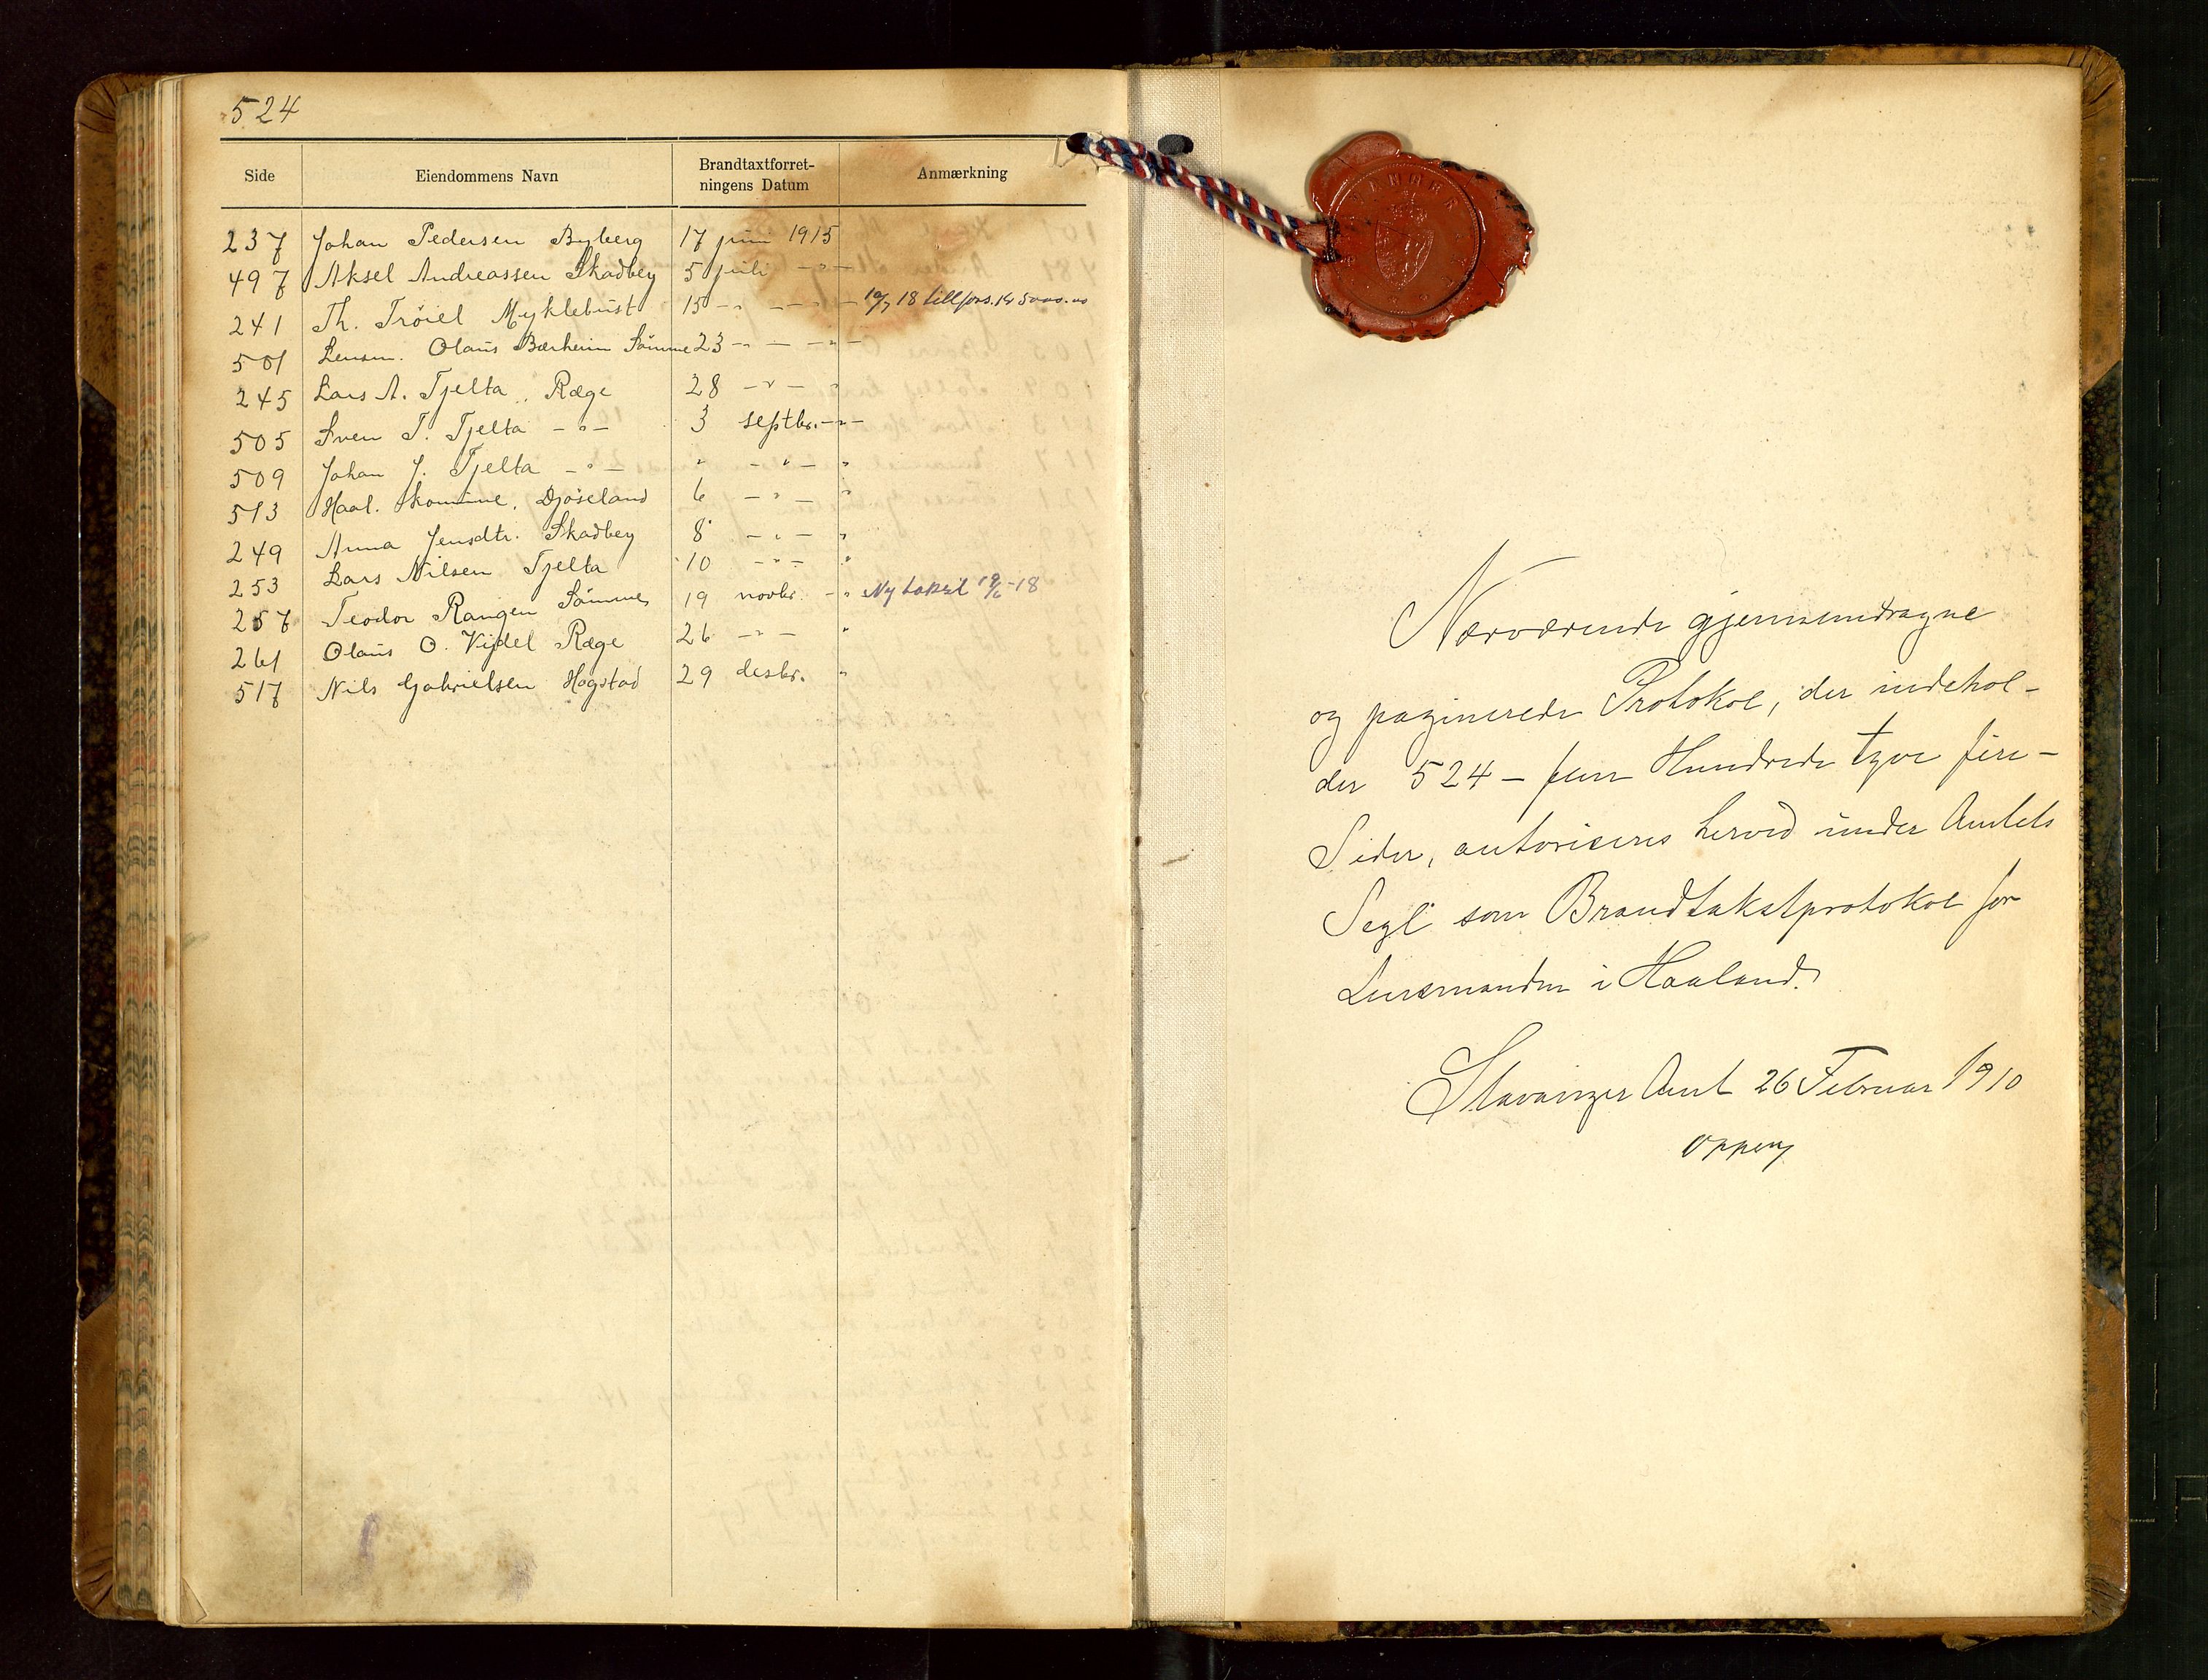 524
Side Eiendommens Navn Brandtaxtforret-ningens Datum Anmærkning
237 Johan Pedersen Byberg 17 juni 1915
497 Aksel Andreassen Skadbeg 5 juli -"-
241 Th. Tröiel Myklebust 15 -"- -"- 10/7 18 tillfors. kr 5000.00
501 Lensm. Olaus Bærheim Sömme 23 -"- -"-
245 Lars A. Tjelta, Ræge 28 -"- "
505 Sven T. Tjelta -"- 3 septbr. -"-
509 Johan J. Tjelta -"- " -"- "
513 Haal. komune, Djöseland 6 -"- "
249 Anna Jensdtr. Skadbeg 8 -"- "
253 Lars Nilsen Tjelta 10 -"- "
257 Teodor Rangen Sömme 19 novbr. -" Ny takst 19/6-18
261 Olaus O. Vigdel Ræge 26 -"- "
517 Nils Gabrielsen Hogstad 29 desbr. "
Nærværende gjennemdragne
og paginerede Protokol, der indehol-
der 524 - fem Hundrede tyve fire -
Sider, autoriseres herved under Amtets
Segl som Brandtakstprotokol for
Lensmanden i Haaland.
Stavanger Amt 26 Februar 1910